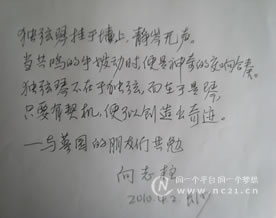 独弦琴挂于墙上，静若无声。
当共鸣的牛拨动时便是神奇的交响合奏。
独弦琴不在于独弦，而在于是琴，
只要有契机，便可以创造出奇迹。
——与菜园的朋友们共勉
向志
2010.4.2
同一个平台 同一个梦想
www.nc21.cn